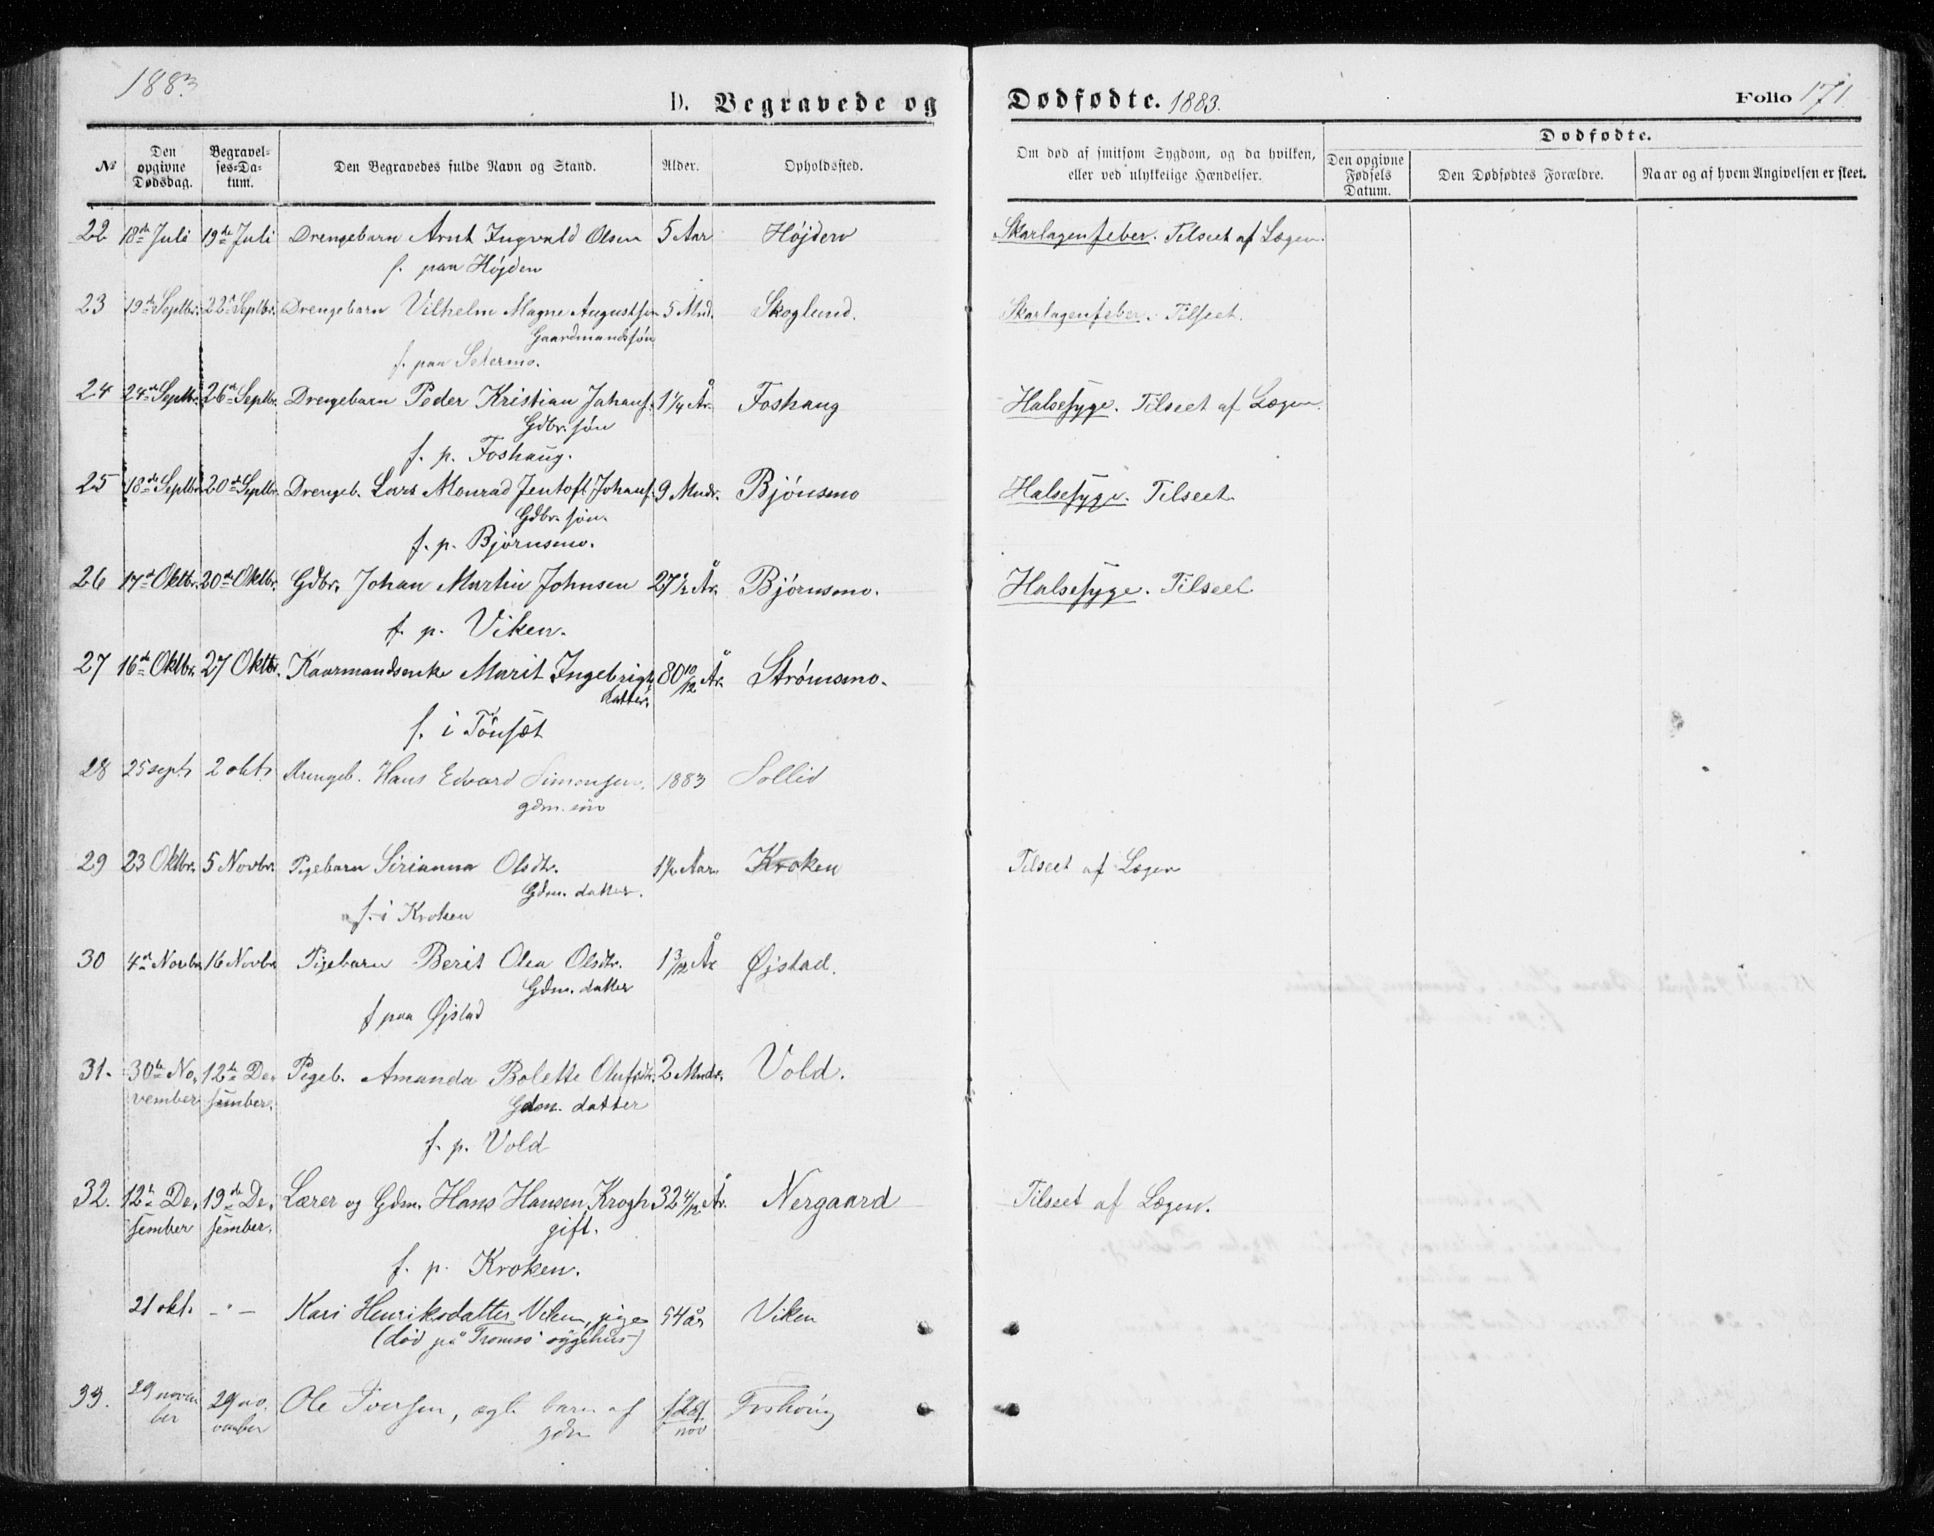 1883
D. Begravede og
Dødfødte. 1883.
Folio 171.
№
Den opgivne Dødsdag.
Begravelses-Datum.
Den Begravedes fulde Navn og Stand.
Alder.
Opholdssted.
Om død af smitsom Sygdom, og da hvilken, eller ved ulykkelige Hændelser.
Dødfødte.
Den opgivne Fødsels Datum.
Den Dødfødtes Forældre.
Naar og af hvem Angivelsen er skeet.
22 18de Juli 19de Juli Drengebarn Arnt Ingvald Olsen 5 Aar Højden Skarlagenfeber. Tilseet af Lægen.
f. paa Højden
23 19de Septbr. 22de Septbr. Drengebarn Vilhelm Magne Augustsen 5 Mnd. Skoglund. Skarlagenfeber. Tilseet.
Gaardmandssøn
f. paa Setermo.
24 24de Septbr. 26de Septbr. Drengebarn Peder Kristian Johans. 1 1/4 År Foshaug Halsesyge. Tilseet af Lægen.
Gdbr. søn
f. p. Foshaug.
25 18de Septbr. 20de Septbr. Drengeb. Lars Monrad Jentoft Johans. 9 Mndr. Bjørnsmo Halsesyge. Tilseet
Gdbr. søn.
f. p. Bjørnsmo.
26 17de Oktbr. 20de Oktbr. Gdbr. Johan Martin Johnsen 27 1/2 År Bjørnsmo. Halsesyge. Tilseet
f. p. Viken.
27 16de Oktbr. 27 Oktbr. Kaarmandsenke Marit Ingebrigts 80 10/12 År. Strømsmo.
datter.
f. i Tønsæt
28 25 sept. 2 okt. Drengeb. Hans Edvard Simonsen. 1883 Sollid
gdm. søn
29 23 Oktbr. 5 Novbr. Pigebarn Sirianna Olsdtr. 1 1/2 Aar Kroken Tilseet af Lægen
Gdm. datter.
f. i Kroken
30 4de Novbr. 16 Novbr. Pigebarn Berit Olea Olsdtr. 1 3/12 År Øjstad.
Gdm. datter
f paa Øjstad
31. 30te No- 12te De- Pigeb. Amanda Bolette Olufsdtr. 2 Mndr. Vold.
vember sember. Gdm. datter
f. p. Vold
32. 12te De- 19de De- Lærer og Gdm. Hans Hansen Krogh 32 4/12 År. Nergaard Tilseet af Lægen.
sember sember. gift.
f. p. Kroken.
21 okt. - " - Kari Henriksdatter Viken, pige 54 år Viken
(død på Tromsø sygehus)
33. 29 novem 29 no- Ole Iversen, ægte barn af Foshoug
ber vember gdm nov